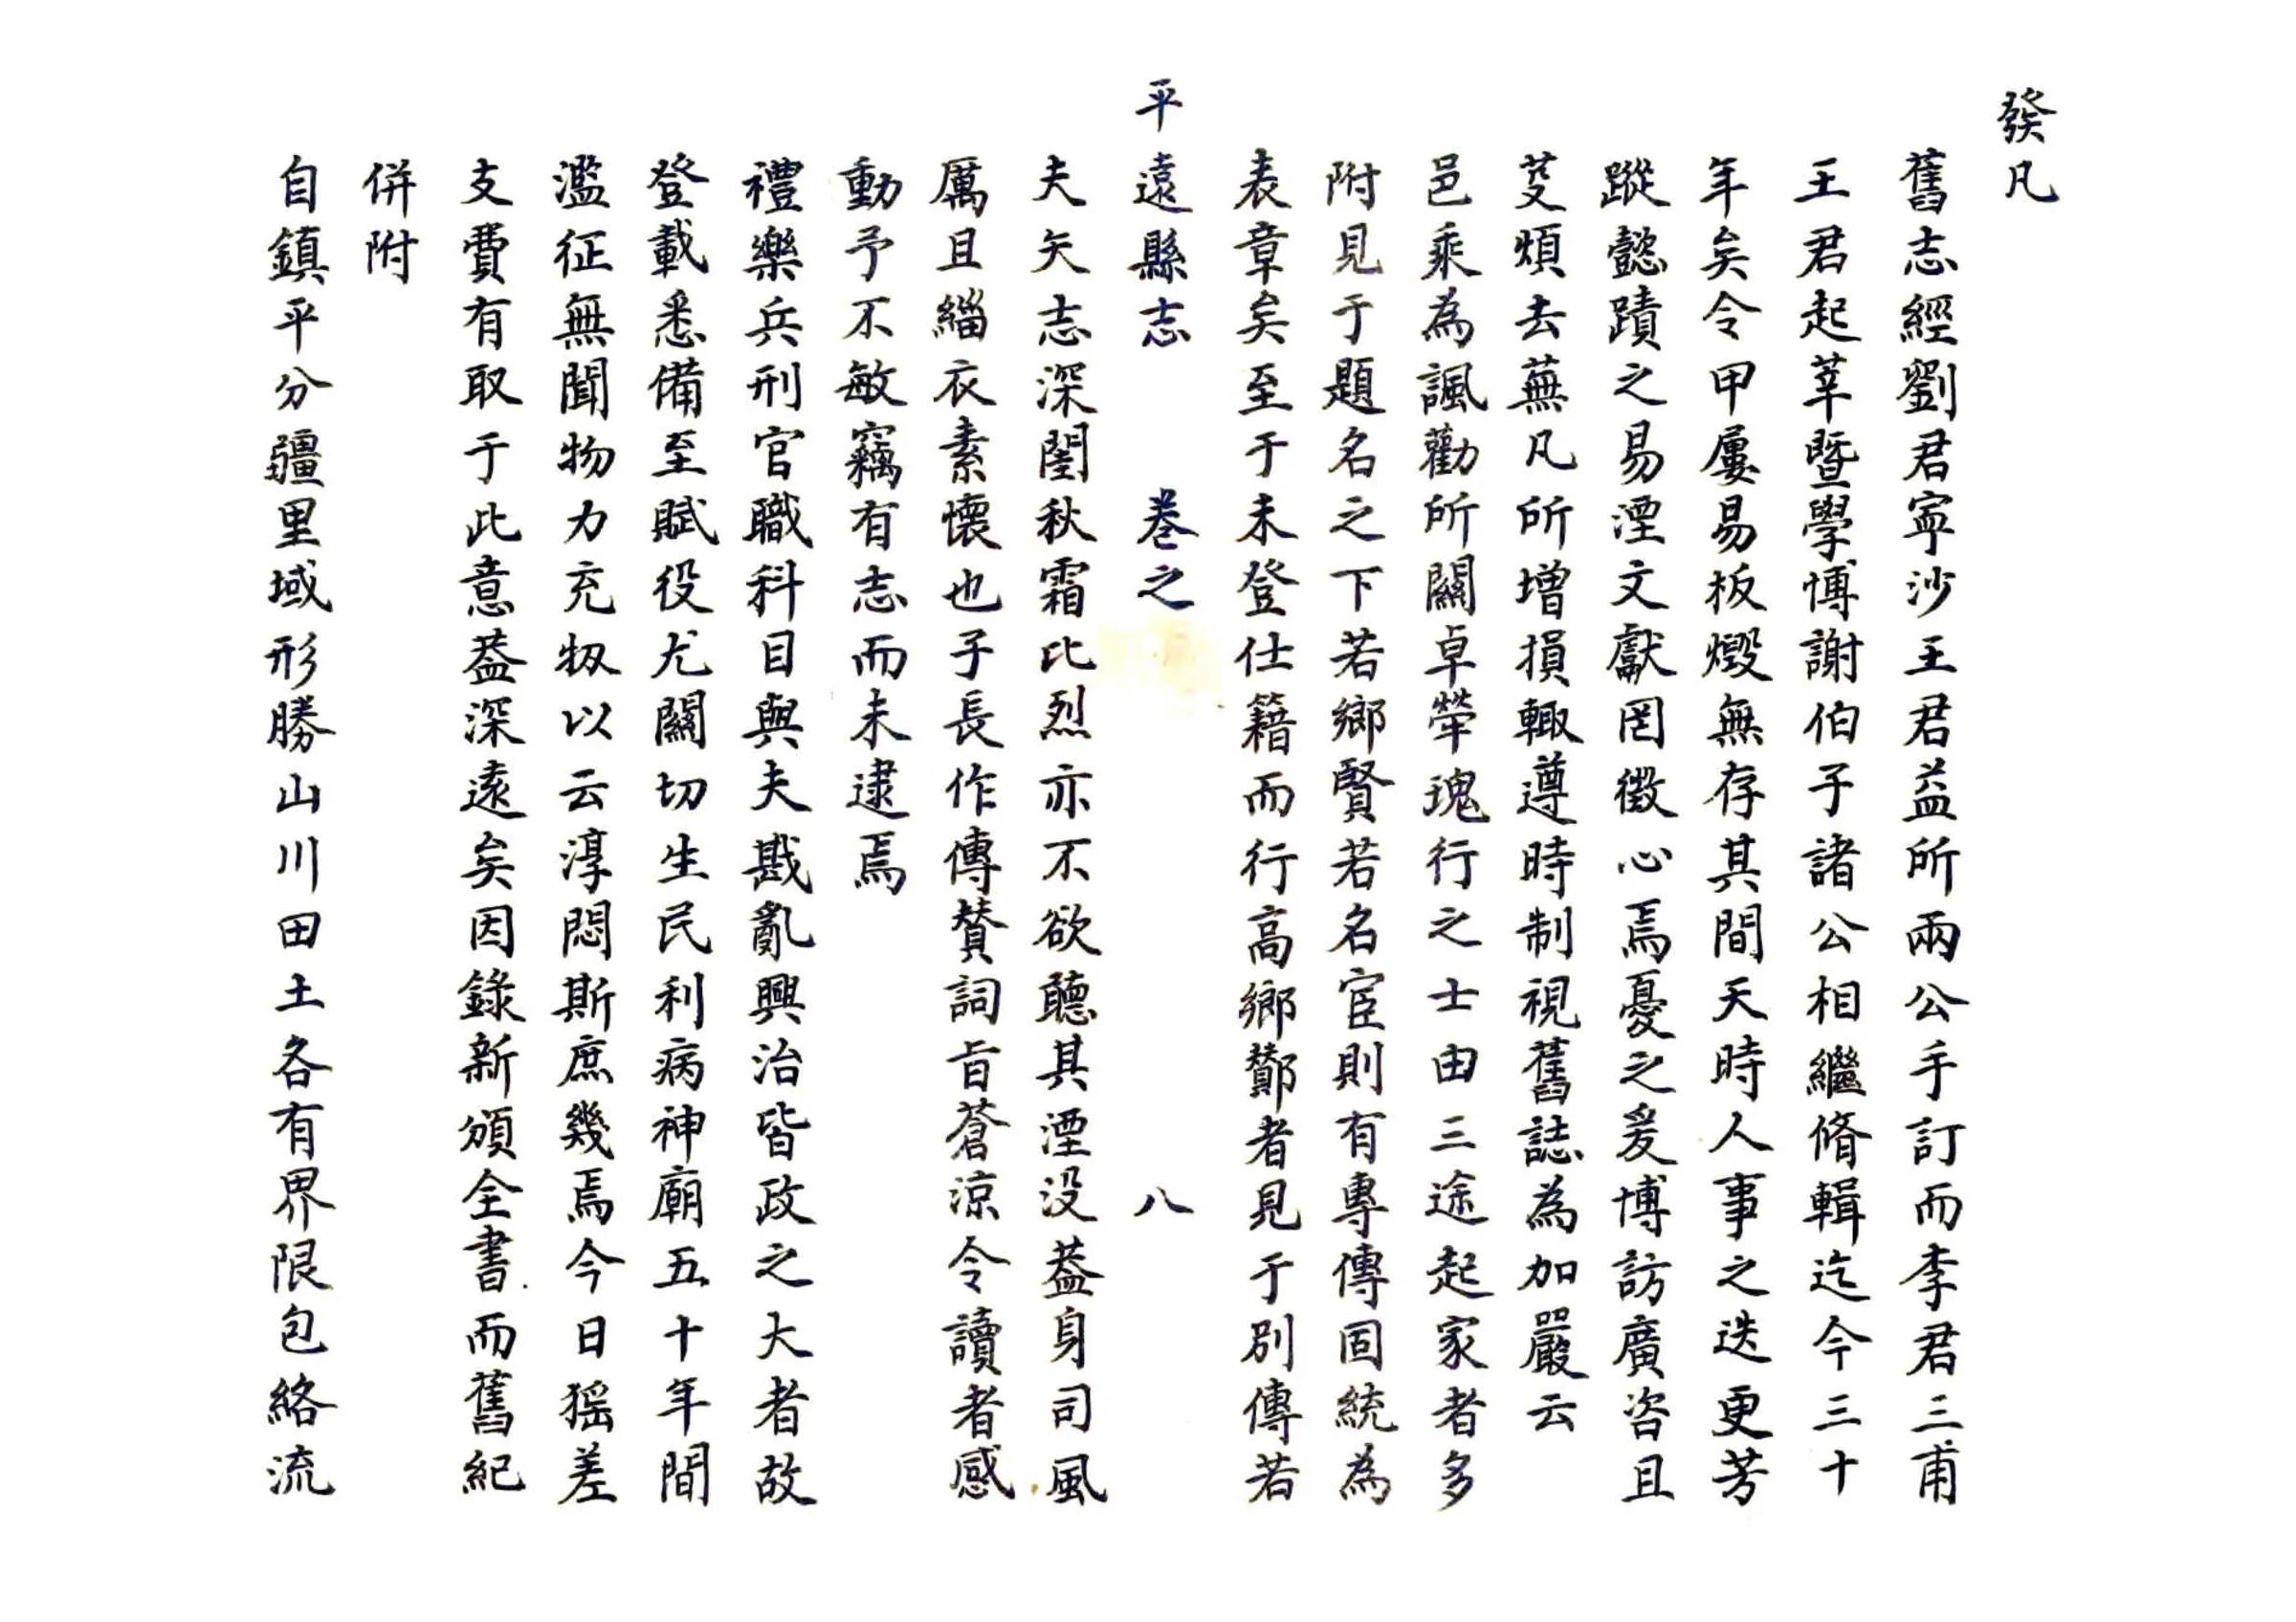 發凡
舊志經劉君寧沙王君益所兩公手訂而李君三甫
王君起莘暨學博謝伯子諸公相繼脩輯迄今三十
年矣令甲屢易板燬無存其間天時人事之迭更芳
蹤懿蹟之易湮文獻罔徵心焉憂之爰博訪廣咨且
芟煩去蕪凡所增損輙遵時制視舊誌為加嚴云
邑乘為諷勸所關卓犖瑰行之士由三途起家者多
附見于題名之下若鄉賢若名宦則有專傳固統為
表章矣至于未登仕籍而行高鄉鄼者見于別傳若
平遠縣志 卷之 八
夫矢志深閨秋霜比烈亦不欲聽其湮沒蓋身司風
厲且緇衣素懷也子長作傳贊詞旨蒼涼令讀者感
動予不敏竊有志而未逮焉
禮樂兵刑官職科目與夫戡亂興治皆政之大者故
登載悉備至賦役尤關切生民利病神廟五十年間
濫征無聞物力充牣以云淳悶斯庶幾焉今日猺差
支費有取于此意蓋深遠矣因錄新頒全書而舊紀
併附
自鎮平分疆里域形勝山川田土各有界限包絡流